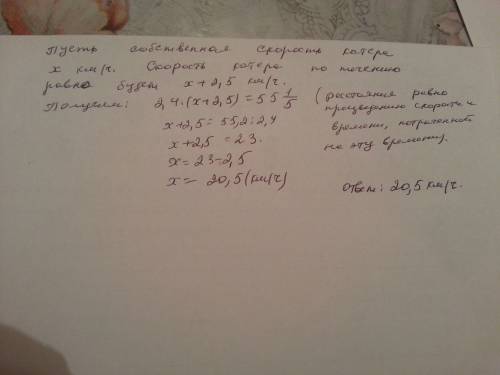 Пусть собственная скорость катера
x км/ч. Скорость катера по течению
равна будет x+2,5 км/ч.
Получаем: 2,4·(x+2,5)=55 1/5 (расстояния равно
произведению скорости и
x+2,5=55,2:2,4 времени, потраченной
x+2,5=23. на эту времени).
x=23-2,5
x=20,5(км/ч) ответ: 20,5 км/ч.